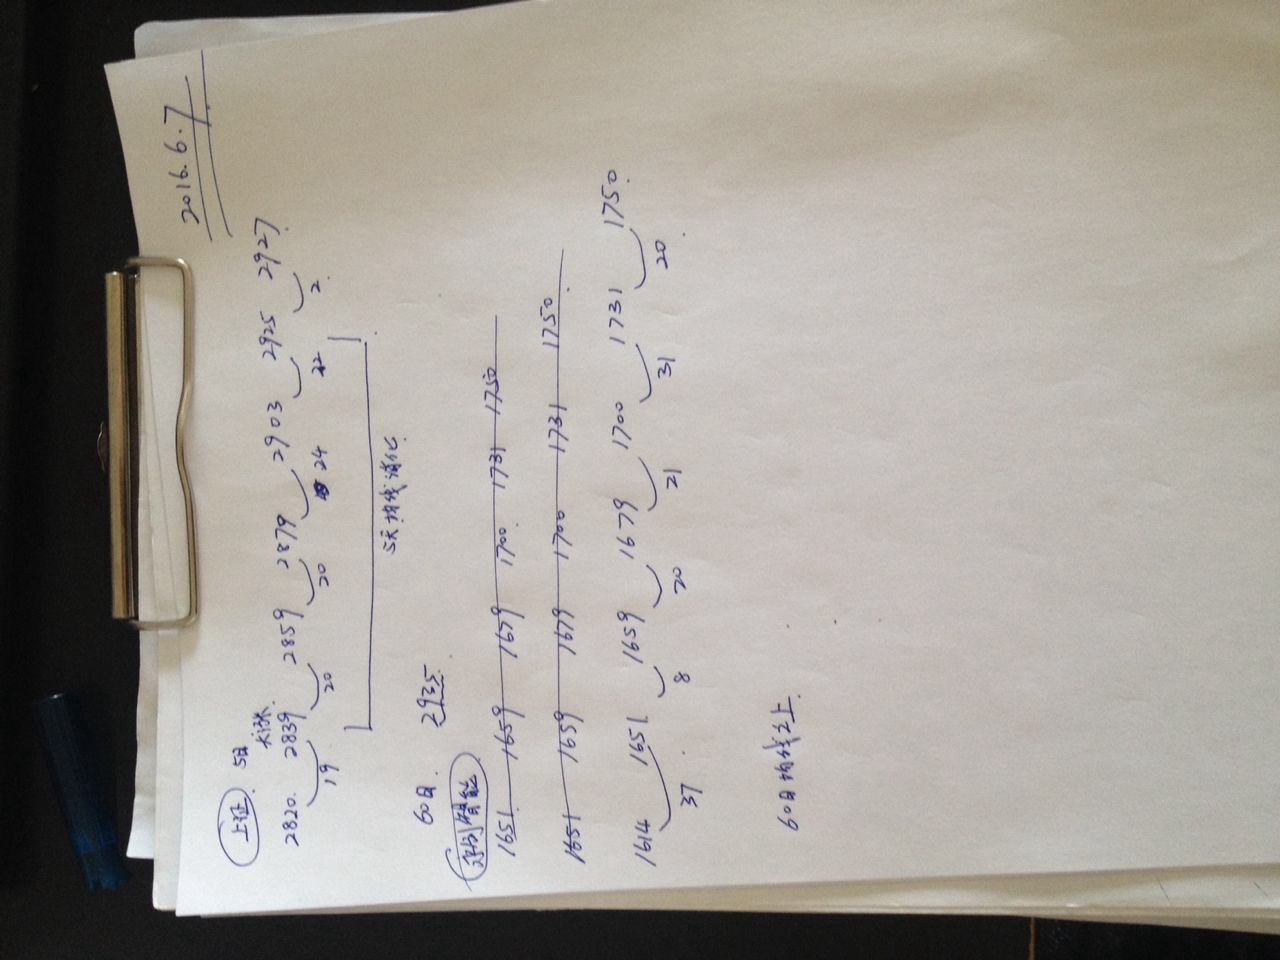 2016.6.7
上证 5日
大涨
2820 2839 2859 2879 2903 2925 2927
19 20 20 24 22 2
5天均线消化
60日 2935
智能
1651 1659 1679 1700 1731 1750
1651 1659 1679 1700 1731 1750
1614 1651 1659 1679 1700 1731 1750
37 8 20 21 31 20
60日均线之上